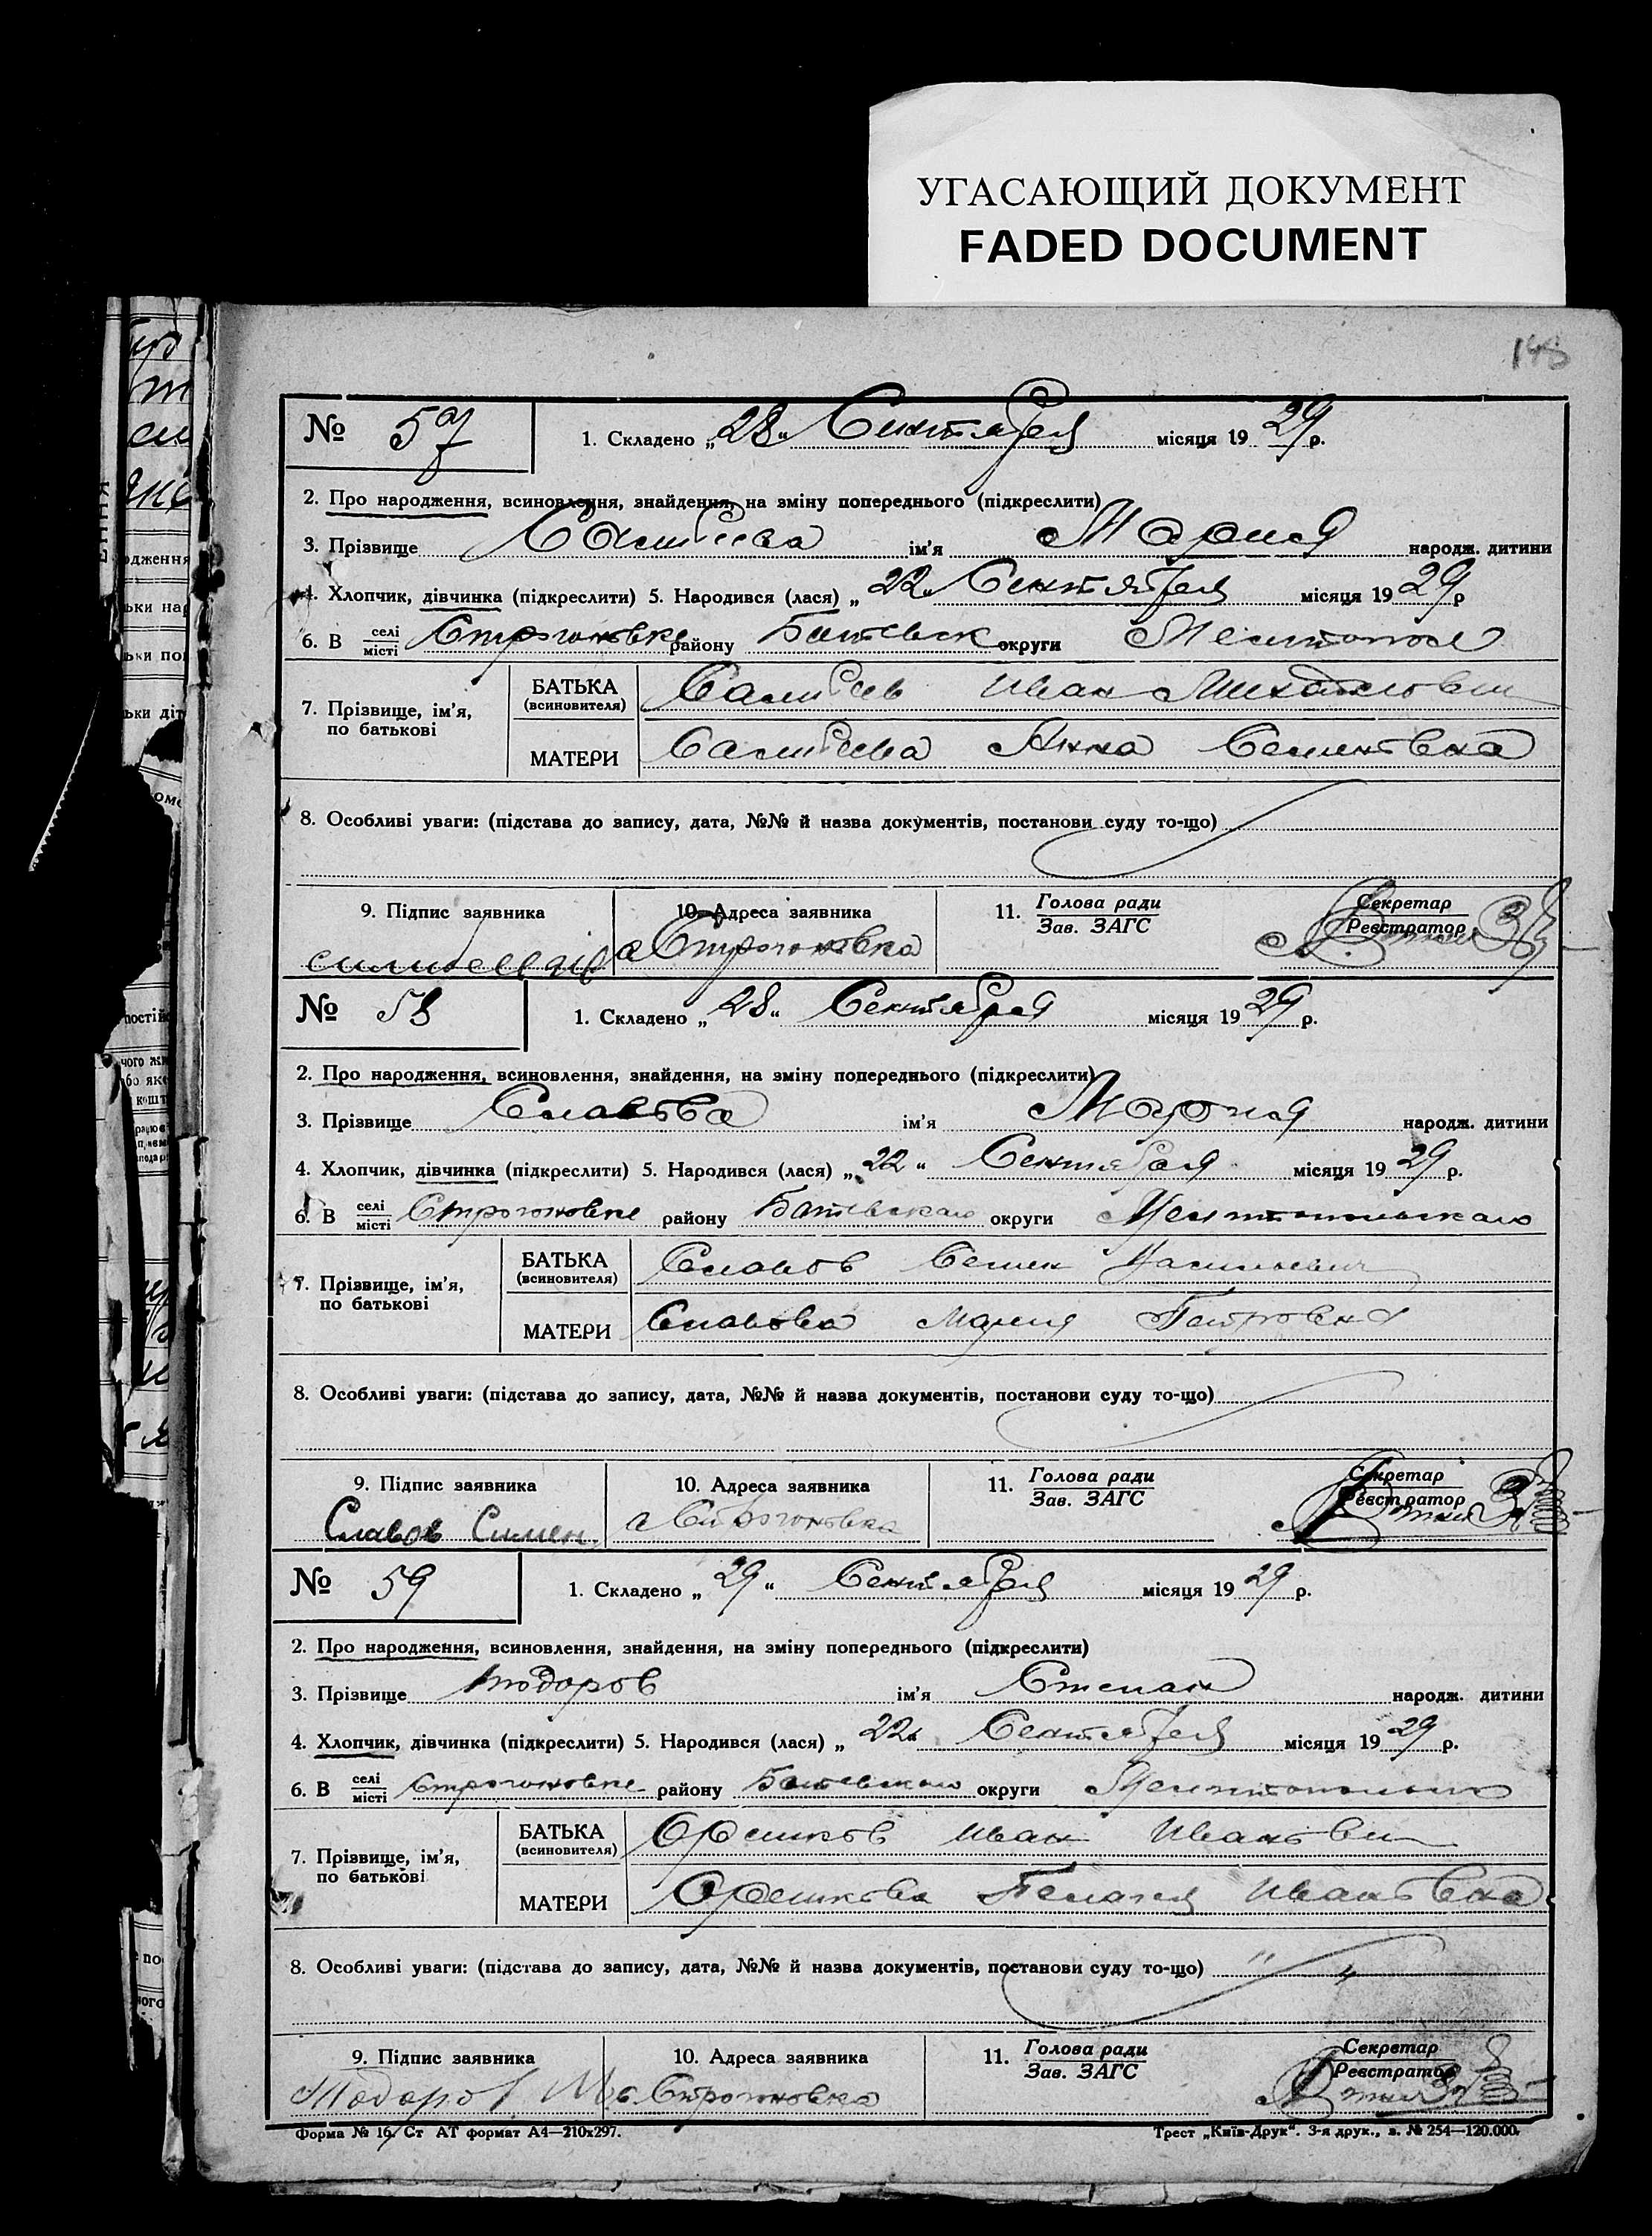 УГАСАЮЩИЙ ДОКУМЕНТ
FADED DOCUMENT
148
№ 57 1. Складено „28“ Сентября місяця 1929 р.
2. Про народження, всиновлення, знайдення, на зміну попереднього (підкреслити)
3. Прізвище ім'я Мария народж. дитини
4. Хлопчик, дівчинка (підкреслити) 5. Народився (лася) „22“ Сентября місяця 1929 р
6. В селі місті Строгоновке району округи
7. Прізвище, ім'я, по батькові БАТЬКА (всиновителя) Иван Михайлович
МАТЕРИ Анна Семеновна
8. Особливі уваги: (підстава до запису, дата, №№ й назва документів, постанови суду то-що)
9. Підпис заявника 10. Адреса заявника 11. Голова ради Зав. ЗАГС Секретар Реєстратор
с Строгоновка
№ 58 1. Складено „28“ Сентября місяця 1929 р.
2. Про народження, всиновлення, знайдення, на зміну попереднього (підкреслити)
3. Прізвище Славова ім'я Мария народж. дитини
4. Хлопчик, дівчинка (підкреслити) 5. Народився (лася) „22“ Сентября місяця 1929 р.
6. В селі місті Строгоновке району округи Мелитопольского
7. Прізвище, ім'я, по батькові БАТЬКА (всиновителя) Славов Семен
МАТЕРИ Славова Мария Петровна
8. Особливі уваги: (підстава до запису, дата, №№ й назва документів, постанови суду то-що)
9. Підпис заявника 10. Адреса заявника 11. Голова ради Зав. ЗАГС Секретар Реєстратор
Славов Симен с Строгоновка
№ 59 1. Складено „29“ Сентября місяця 1929 р.
2. Про народження, всиновлення, знайдення, на зміну попереднього (підкреслити)
3. Прізвище Тодоров ім'я Степан народж. дитини
4. Хлопчик, дівчинка (підкреслити) 5. Народився (лася) „22“ Сентября місяця 1929 р.
6. В селі місті Строгоновке району округи
7. Прізвище, ім'я, по батькові БАТЬКА (всиновителя) Орешков Иван Иванови
МАТЕРИ Орешкова Пелагея Ивановна
8. Особливі уваги: (підстава до запису, дата, №№ й назва документів, постанови суду то-що)
9. Підпис заявника 10. Адреса заявника 11. Голова ради Зав. ЗАГС Секретар Реєстратор
Тодоров М с Строгоновка
Форма № 16. Ст АТ формат А4—210х297. Трест „Київ-Друк“. 3-я друк., з. № 254—120.000.